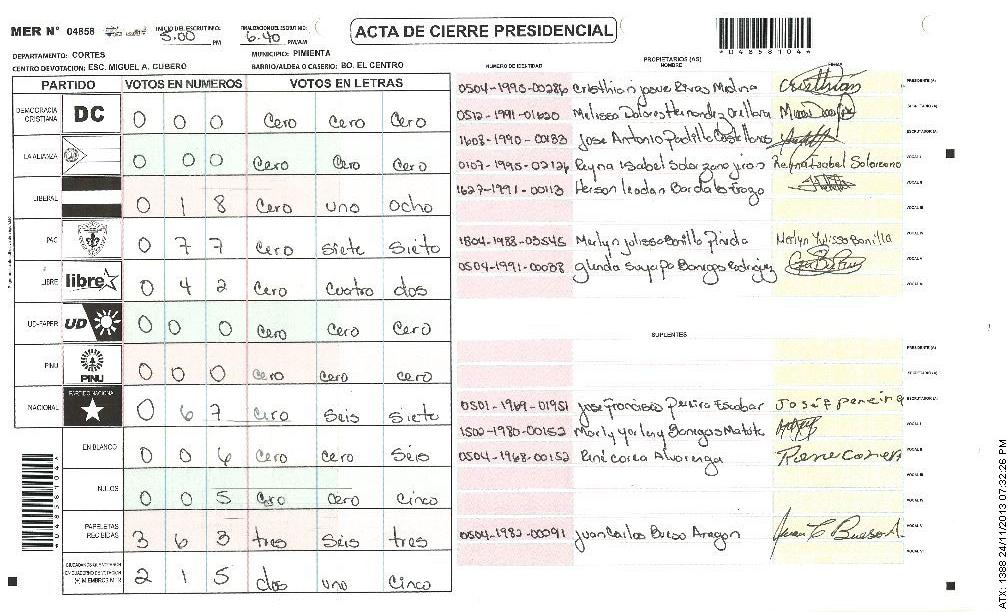 MER N° 04858 INICIO DEL ESCRUTINIO: 5:00 PM FINALIZACION DEL ESCRUTINIO: 6:40 PM/AM
ACTA DE CIERRE PRESIDENCIAL
DEPARTAMENTO: CORTES MUNICIPIO: PIMIENTA
CENTRO DEVOTACION: ESC. MIGUEL A. CUBERO BARRIO/ALDEA O CASERIO: BO. EL CENTRO
PARTIDO VOTOS EN NUMEROS VOTOS EN LETRAS
DEMOCRACIA CRISTIANA DC 0 0 0 Cero Cero Cero
LA ALIANZA 0 0 0 Cero Cero Cero
LIBERAL 0 1 8 Cero uno ocho
PAC 0 7 7 Cero Siete Siete
LIBRE libre 0 4 2 Cero Cuatro dos
UD-FAPER UD 0 0 0 Cero Cero Cero
PINU PINU 0 0 0 Cero Cero Cero
NACIONAL PARTIDO NACIONAL 0 6 7 Cero Seis Siete
EN BLANCO 0 0 6 Cero Cero Seis
NULOS 0 0 5 Cero Cero Cinco
PAPELETAS RECIBIDAS 3 6 3 tres Seis tres
2 1 5 dos uno Cinco
NUMERO DE IDENTIDAD PROPIETARIOS (AS) NOMBRE FIRMA
0504-1990-00286 Cristhian Josue Rivas Molina Cristhian PRESIDENTE (A)
0512-1991-01620 Melissa Dolores Hernandez Orellana SECRETARIO (A)
1608-1990-00133 Jose Antonio Padilla Castellanos ESCRUTADOR (A)
0107-1995-02126 Reyna Isabel Solorzano Reyna Isabel Solorzano VOCAL I
1627-1991-00113 VOCAL II
VOCAL III
1804-1988-03545 Merlyn Julissa Bonilla Pineda Merlyn Yulissa Bonilla VOCAL IV
0504-1991-00038 Glenda Suyapa Banegas Rodriguez VOCAL V
VOCAL VI
SUPLENTES
PRESIDENTE (A)
SECRETARIO (A)
0501-1969-01951 Jose Francisco Pereira Escobar José F pereira ESCRUTADOR (A)
1502-1980-00152 Marly Yorleny Banegas VOCAL I
0504-1968-00152 René Corea Alvarenga Rene Corea A VOCAL II
VOCAL III
VOCAL IV
0504-1982-00091 Juan Carlos Bueso Aragon Juan C Bueso A. VOCAL V
VOCAL VI
ATX: 1388 24/11/2013 07:32:26 PM